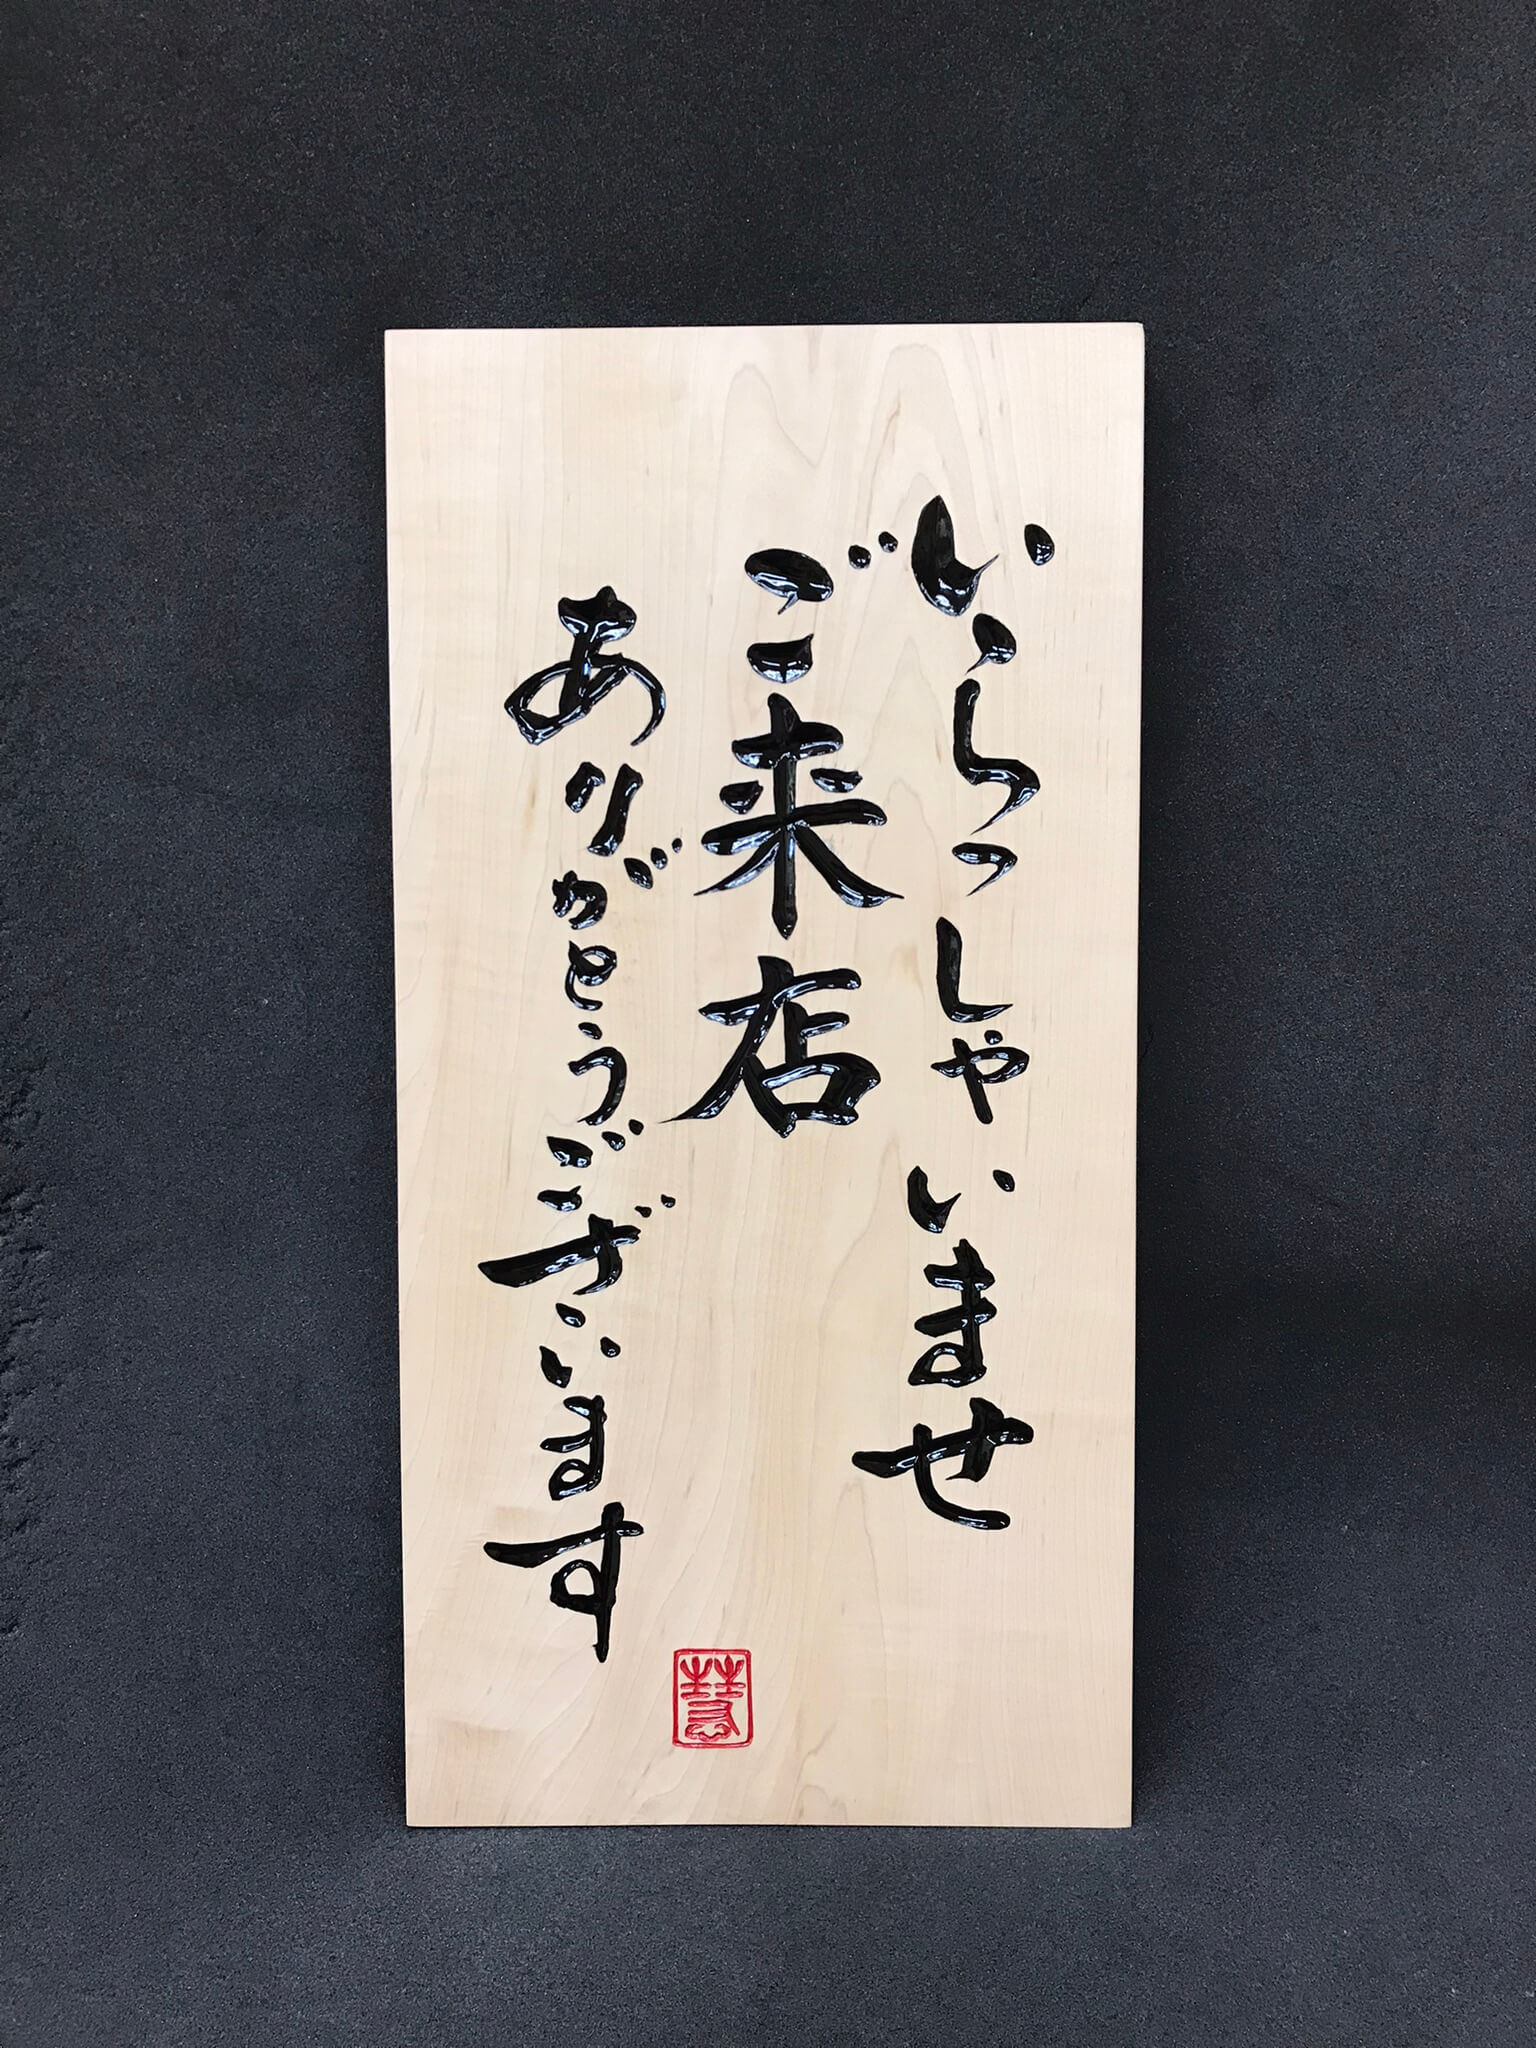 いらっしゃいませ
ご来店
ありがとうございます
慧